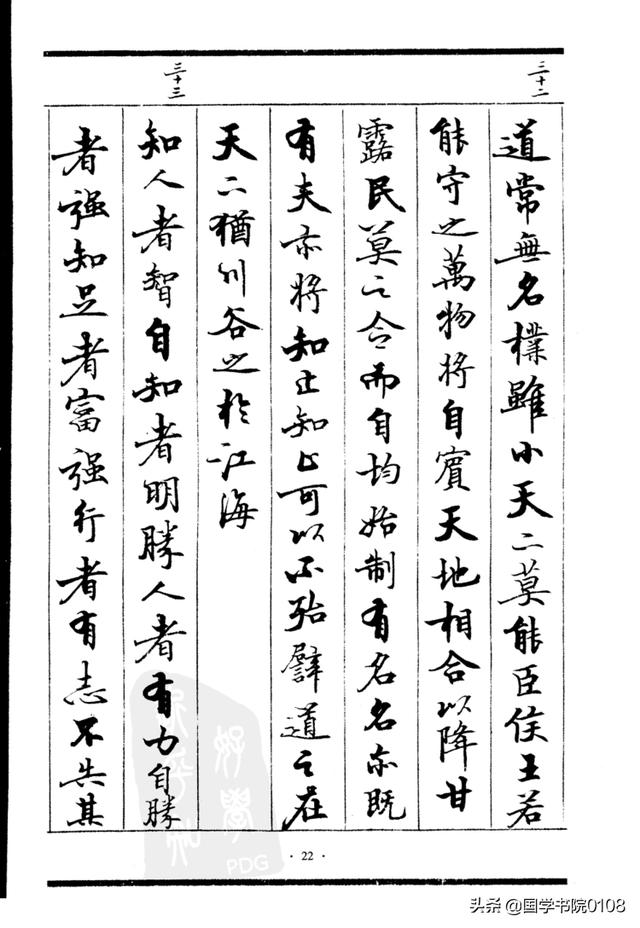 三十二
道常無名樸雖小天下莫能臣侯王若
能守之萬物將自賓天地相合以降甘
露民莫之令而自均始制有名名亦既
有夫亦將知止知止可以不殆譬道之在
天下猶川谷之於江海
三十三
知人者智自知者明勝人者有力自勝
者强知足者富强行者有志不失其
· 22 ·
好學
PDG
头条 @国学书院0108